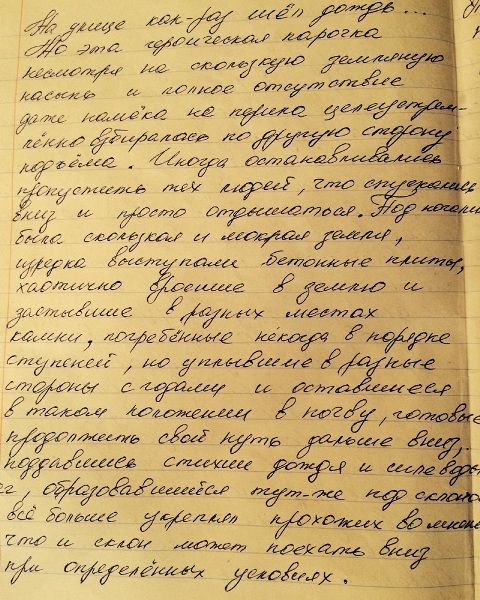 На улице как-раз шёл дождь...
Но эта героическая парочка
несмотря на скользкую земляную
насыпь и полное отсутствие
даже намёка на перила целеустрем-
лённо взбиралась по другую сторону
подъёма. Иногда останавливались
пропустить тех людей, что спускались
вниз и просто отдышаться. Под ногами
была скользкая и мокрая земля,
изредка выступали бетонные плиты,
хаотично вросшие в землю и
застывшие в разных местах
камни, погребённые некогда в порядке
ступеней, но уплывшие в разные
стороны с годами и оставшиеся
в таком положении в почву, готовые
продолжить свой путь дальше вниз,
поддавшись стихии дождя и силе воды
образовавшийся тут-же под склоном
всё больше укреплял прохожих во мнении
что и склон может поехать вниз
при определённых условиях.